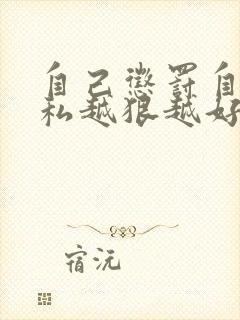 自己懲罰自
私越狠越好
宿沅